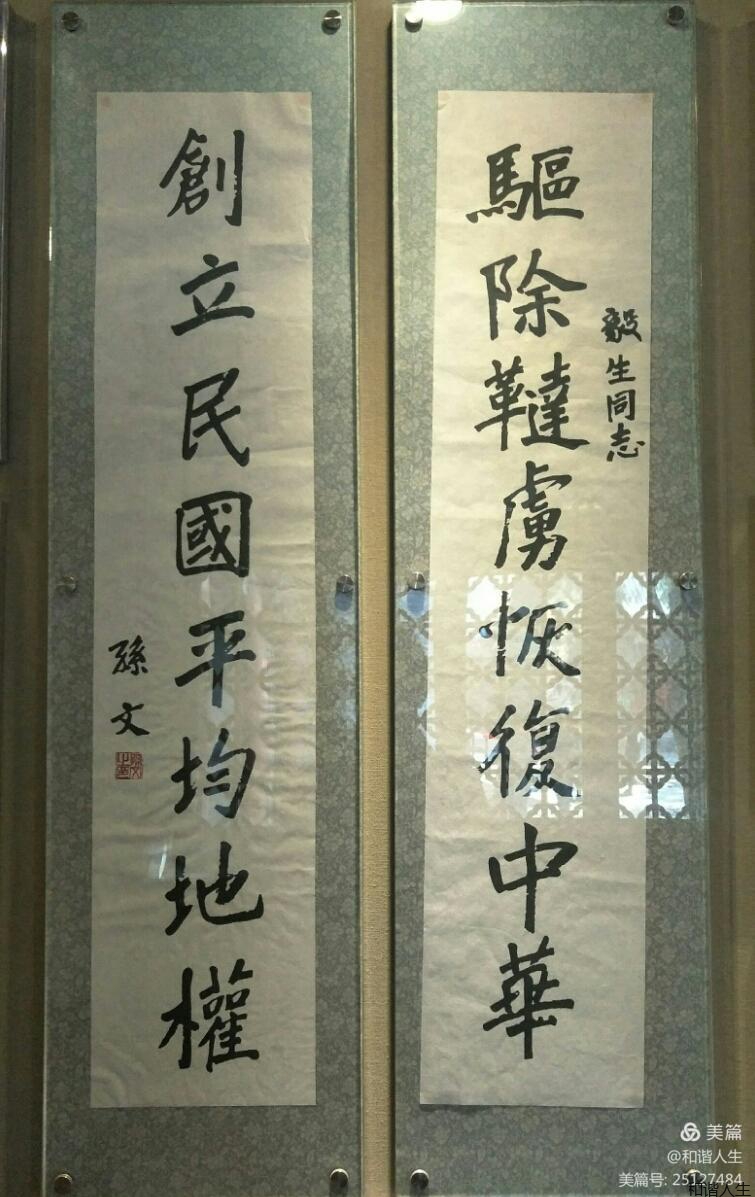 毅生同志
驅除韃虜恢復中華
創立民國平均地權
孫文
美篇
@和谐人生
美篇号: 25127484
和谐人生